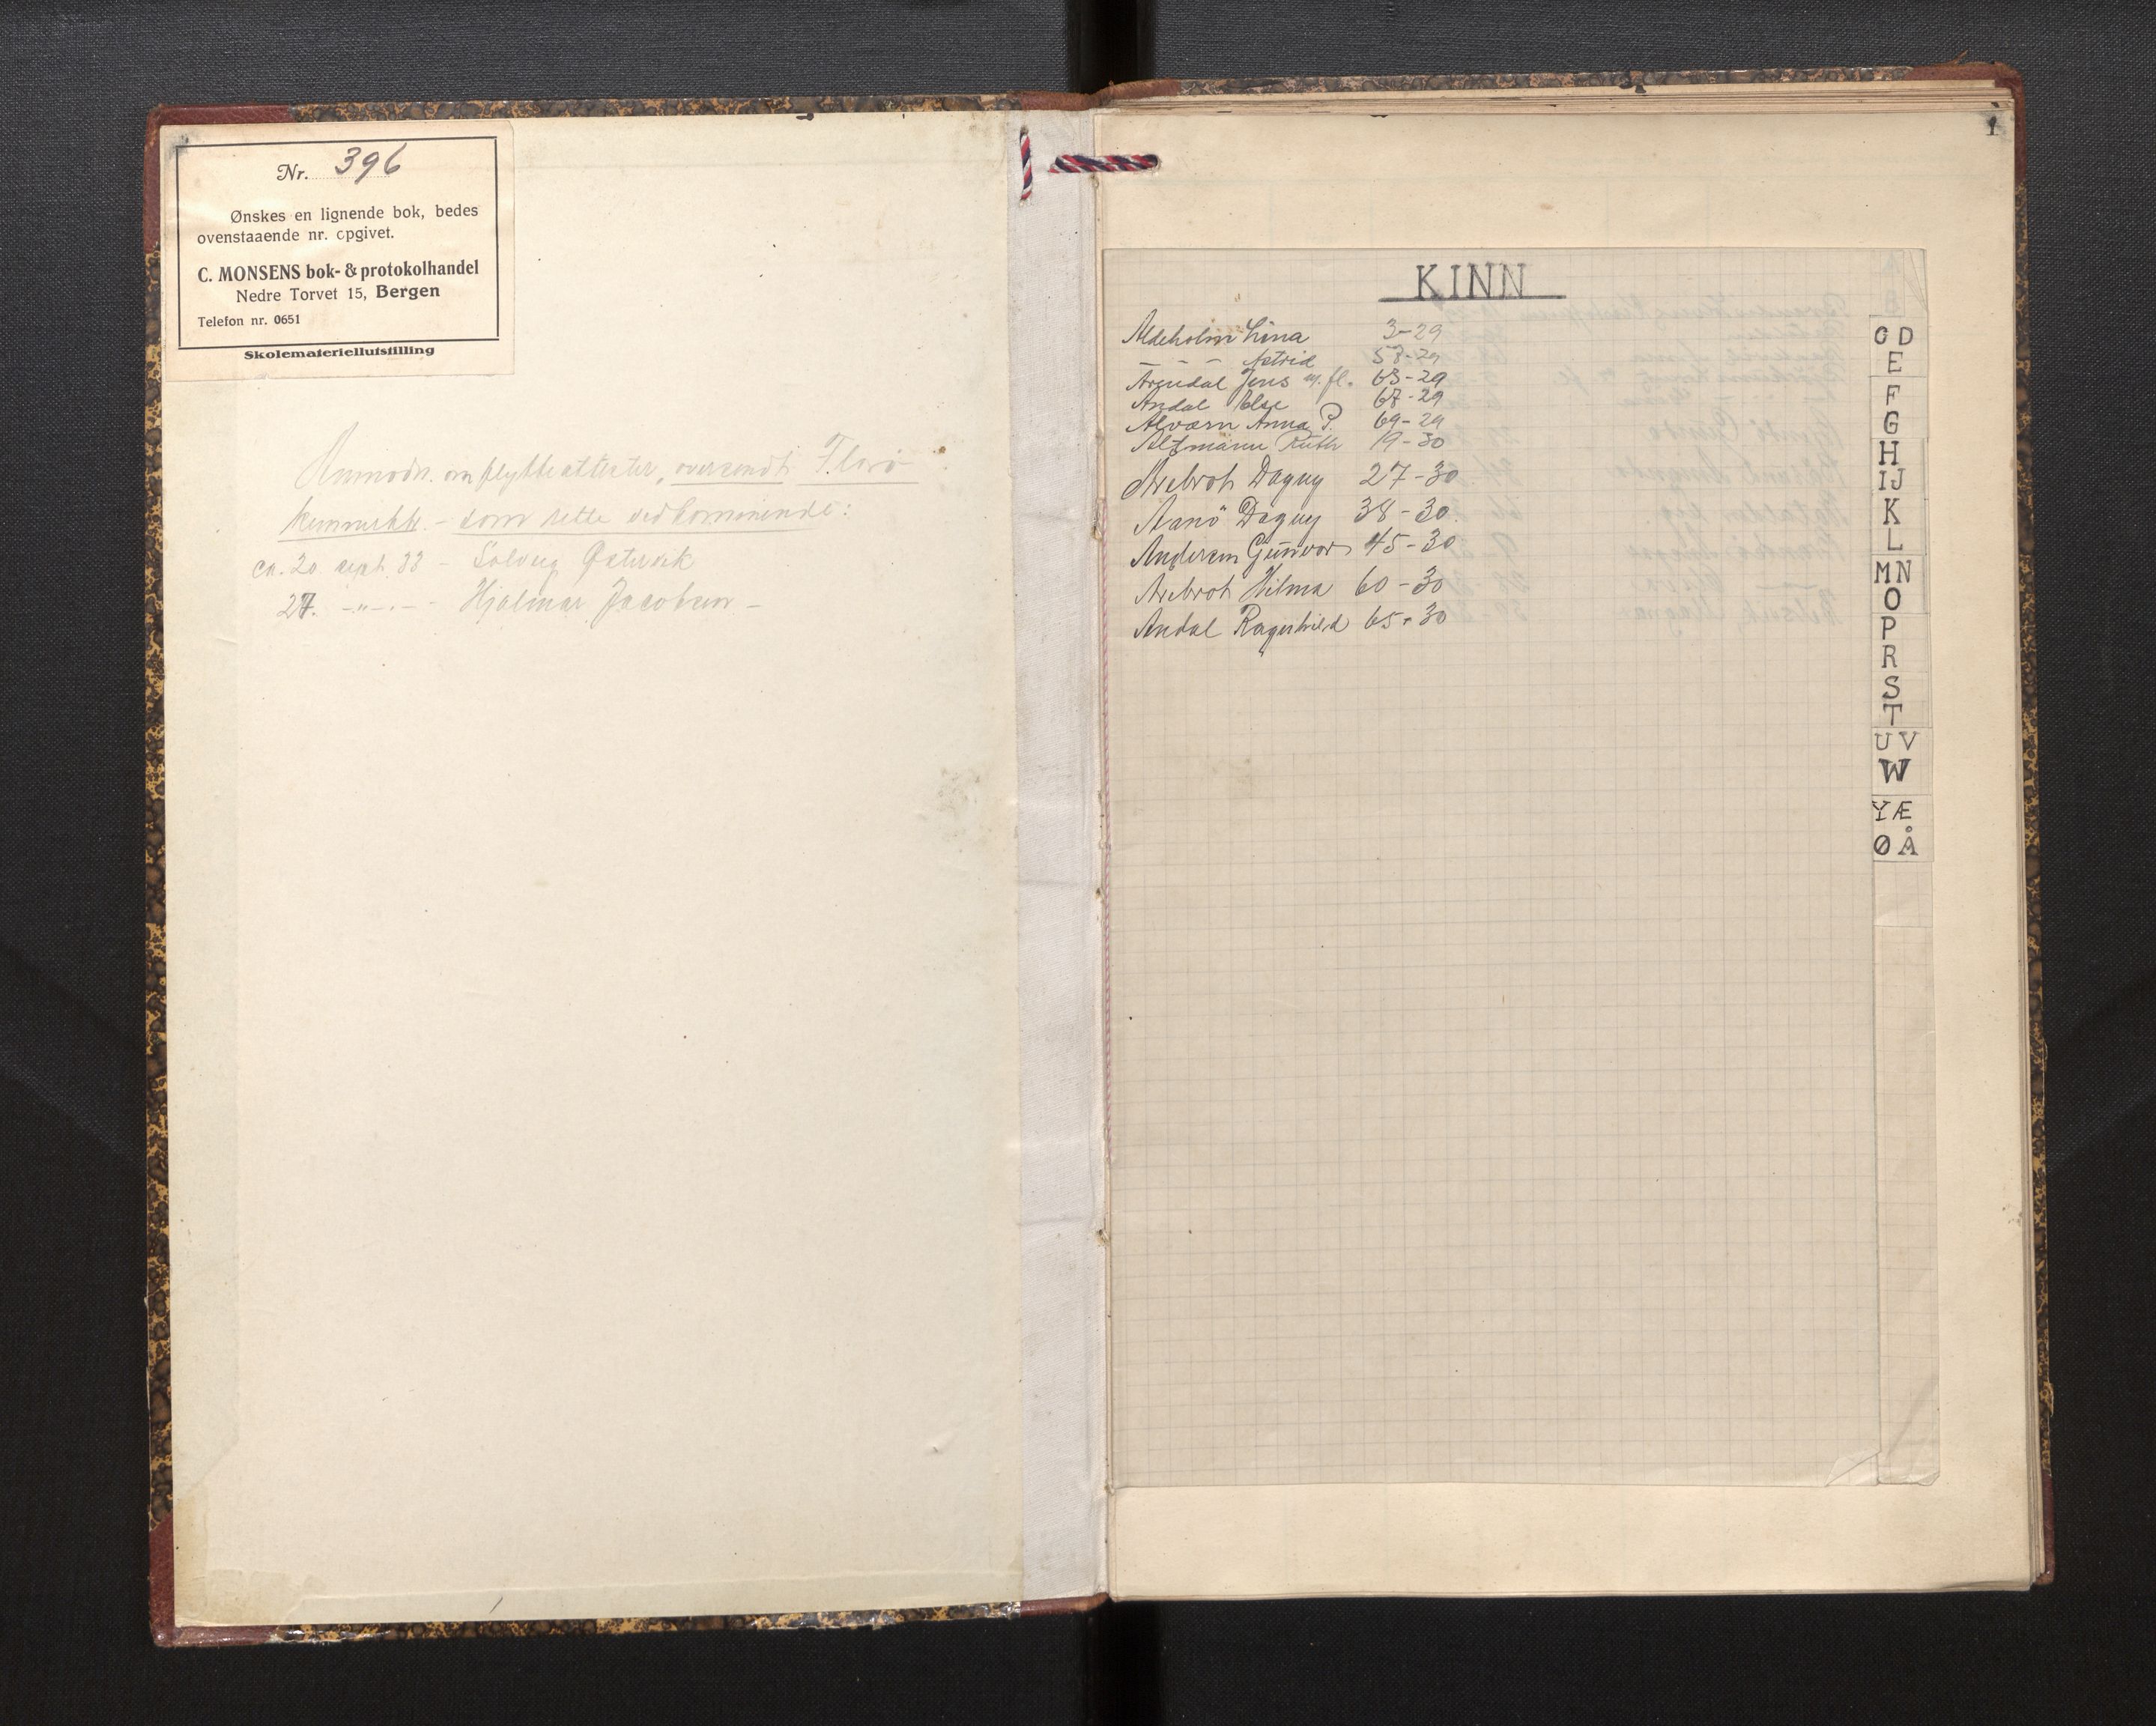 Nr. 396
Ønskes en lignende bok, bedes
ovenstaaende nr. opgivet.
C. MONSENS bok- & protokolhandel
Nedre Torvet 15, Bergen
Telefon nr. 0651
Skolemateriellutstilling
Anmodn. om flytteattester, oversendt Florö
- som rette vedkommende:
ca. 20. sept. 33 - Solveig Østervik
27. -"-.- - Hjalmar Jacobsen -
1
KINN
Aldeholm Lina 3-29
- - - Astrid 58-29
Arendal Jens m. fl. 63-29
Andal Else 67-29
Alværn Anna P. 69-29
Altmann Ruth 19-30
Arebrot Dagny 27-30
Aanö Dagny 38-30
Andersen Gunvor 45-30
Arebrot Hilma 60-30
Andal Ragnhild 65-30
C D
E
F
G
H
IJ
K
L
MN
O
P
R
S
T
U V
W
YÆ
Ø Å